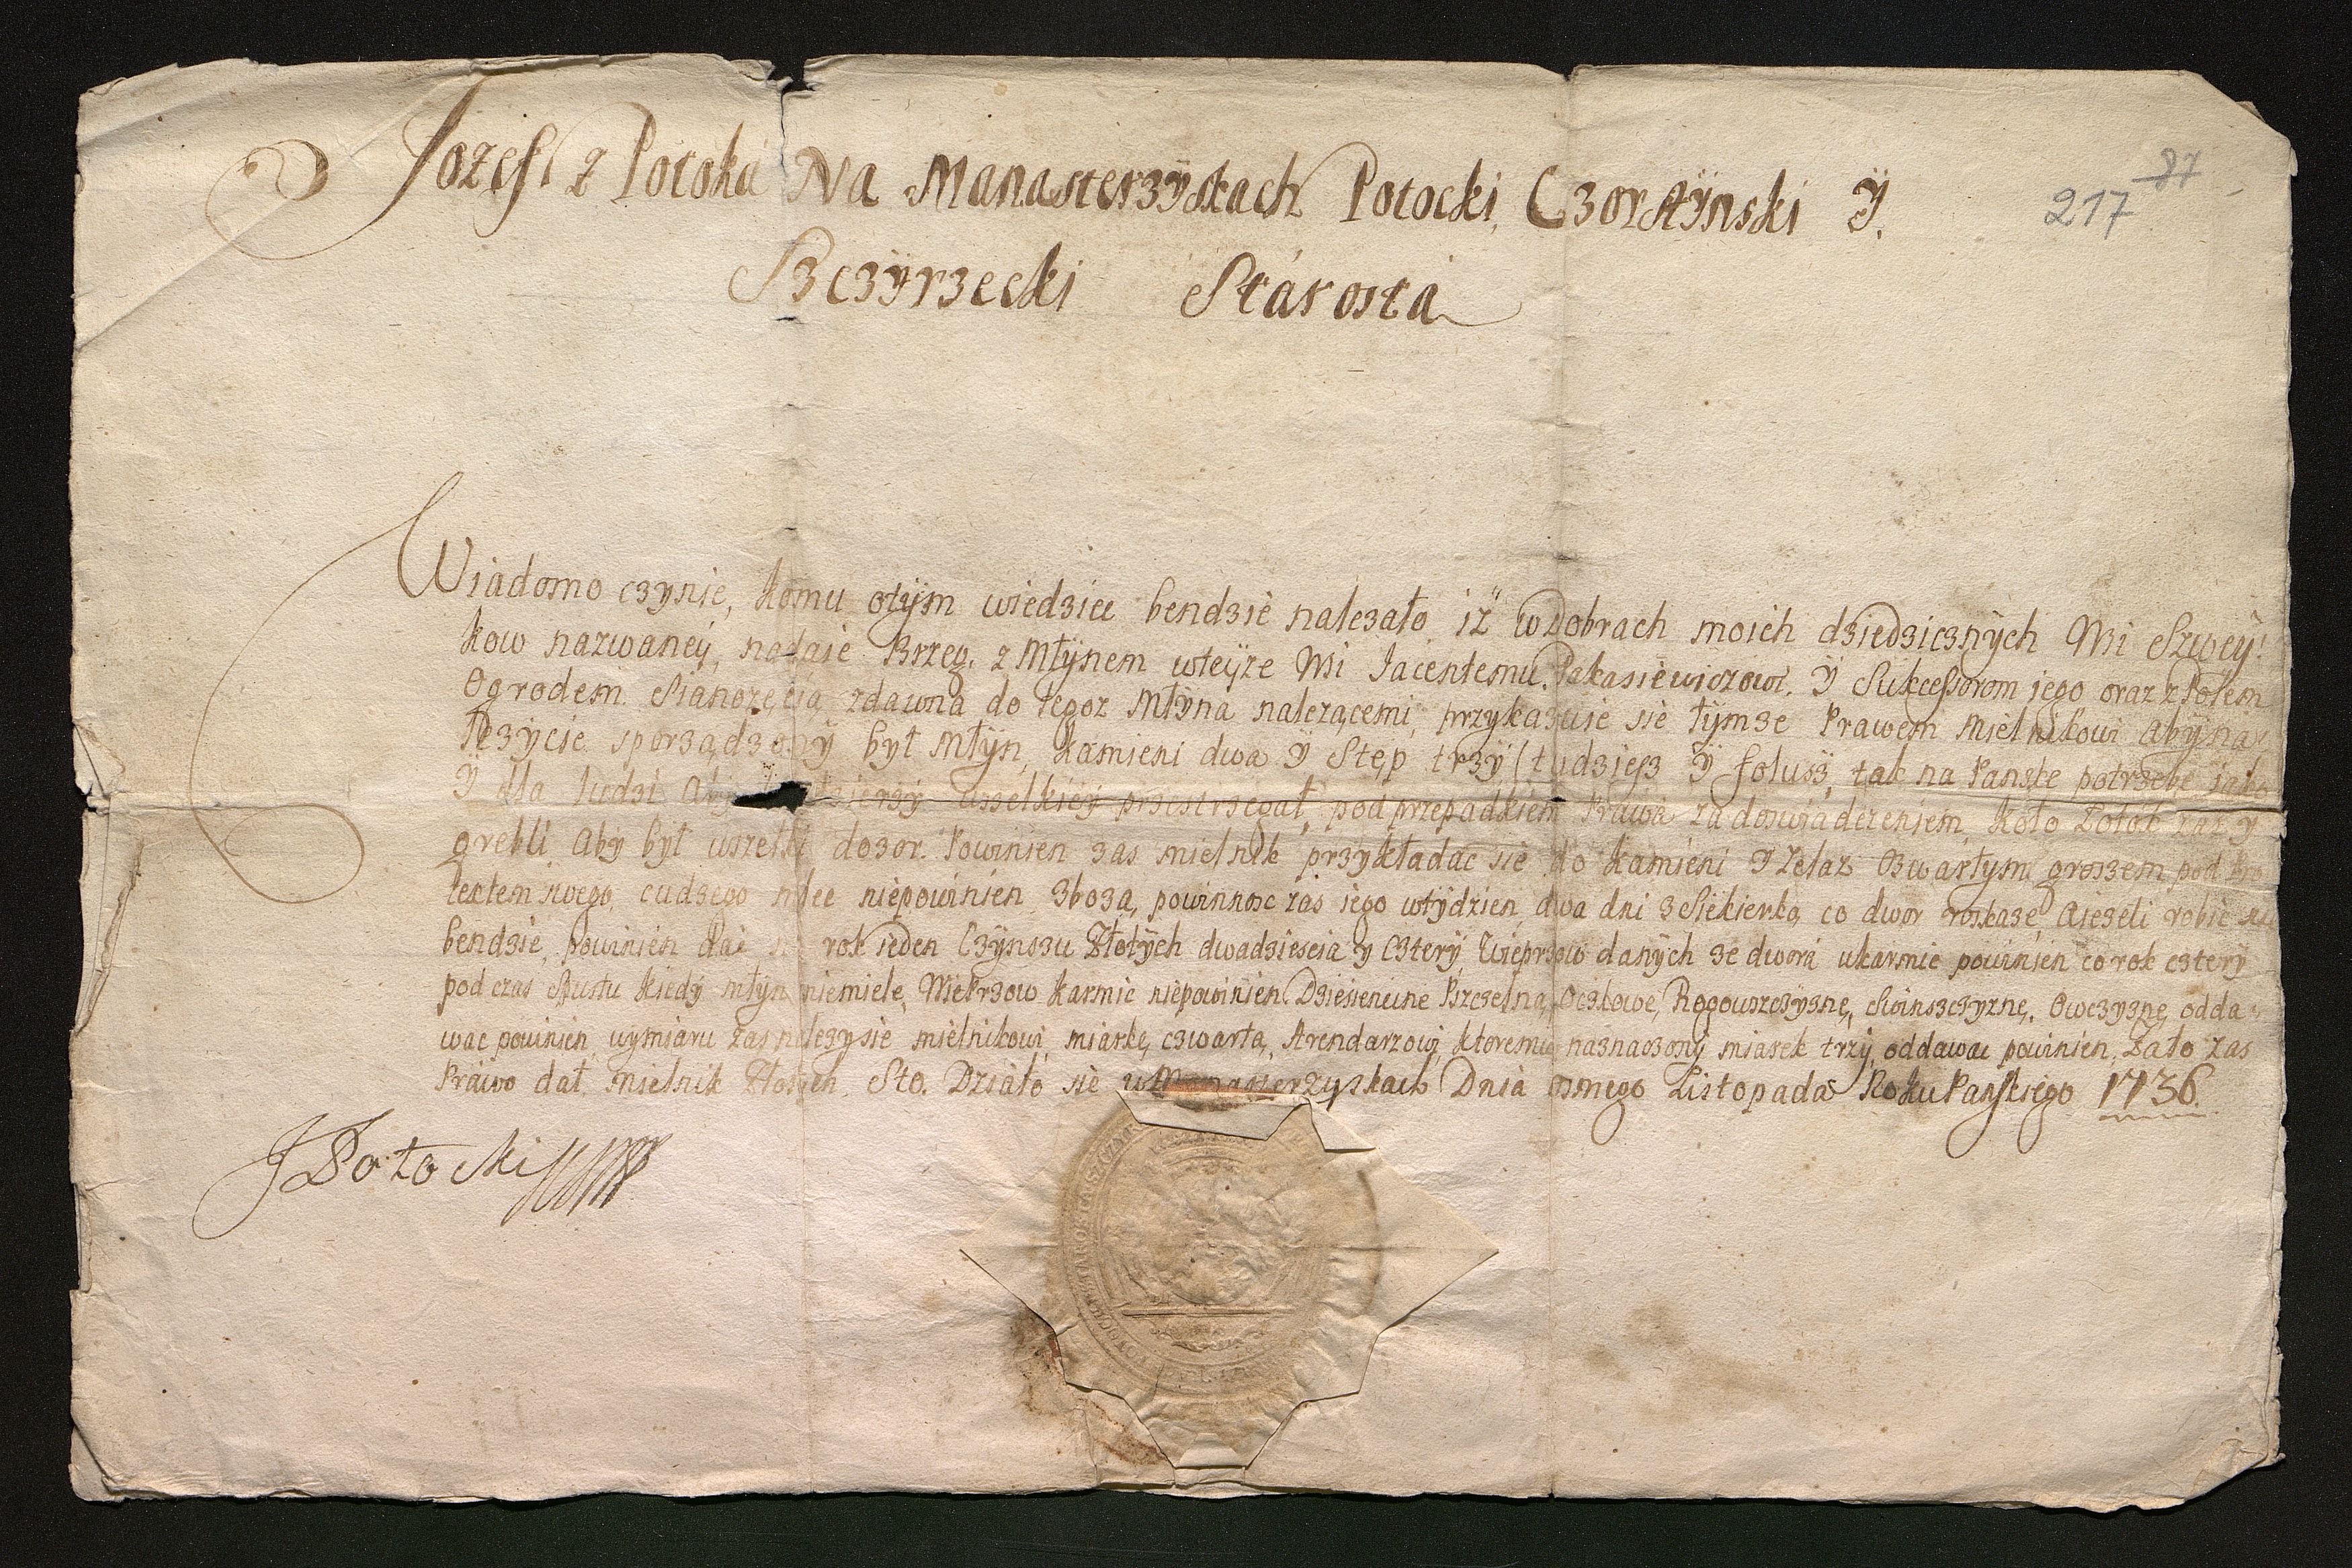 Jozef z Potoka Na Manasterzÿskach Potocki, Czorstÿnski ÿ.
Szczÿrzecki Stárosta
217 87
Wiadomo czynie, komu otÿm wiedziec bendzie nalezało iz wDobrach moich dziedzicznÿch Wsi Szweÿ:
kow nazwaneÿ, nadaie Brzeg, z Młÿnem wteÿze Wsi Jacentemu ÿ Sukcessorom jego oraz z Polem
Ogrodem Sianozęcią zdawna do tegoz Młÿna nalezącemi, przykazuie sie tÿmze Prawem Mielnikowi abÿ
sporządzonÿ był Młÿn, Kamieni dwa ÿ Stęp trzÿ tudziesz ÿ folusz, tak na Panske potrzebe iako
ÿ dla ludzi przestrzegał, pod przepadkiem Prawa za doswiadczeniem, Koło
grebli Aby był wszelki dozor. Powinien zas mielnik przykładac sie do kamieni ÿ Zelaz Czwartym groszem pod
textem swego, cudzego niepowinien zboza, powinnosc zas iego wtÿdzien dwa dni z Siekierką co dwor roskaze, Aiezeli robic
bendzie, powinien dac rok ieden Czÿnszu Złotÿch dwadziescia y czterÿ Wieprzow danÿch ze dwora ukarmic powinien co rok czterÿ
pod czas Spustu kiedÿ młÿn niemiele, Wieprzow karmic niepowinien, Dziesiencine Pszczelną, Oczkowe, Rogowszczÿznę, Swinszczyznę, Owczyznę, odda
wac powinien, wymiaru zas nalezy sie mielnikowi, miarkę czwartą, Arendarzowi, ktoremu naznaczonÿ miarek trzÿ, oddawac powinien, Zato zas
Prawo dał mielnik Złotych Sto. Działo sie w Manasterzyskach Dnia osmego Listopada Roku Panskiego 1736.
JPotocki